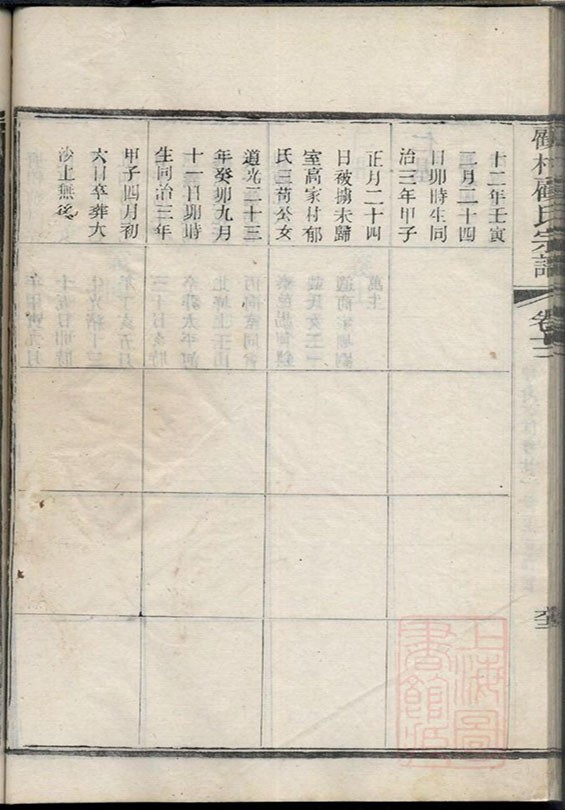 村顧氏宗譜
卷十二
十二年壬寅
二月二十四
日卯時生同
治三年甲子
正月二十四
日被擄未歸
室高家村郁
氏三荷公女
道光二十三
年癸卯九月
十一日卯時
生同治三年
甲子四月初
六日卒葬大
沙上無後
上海圖
書館藏